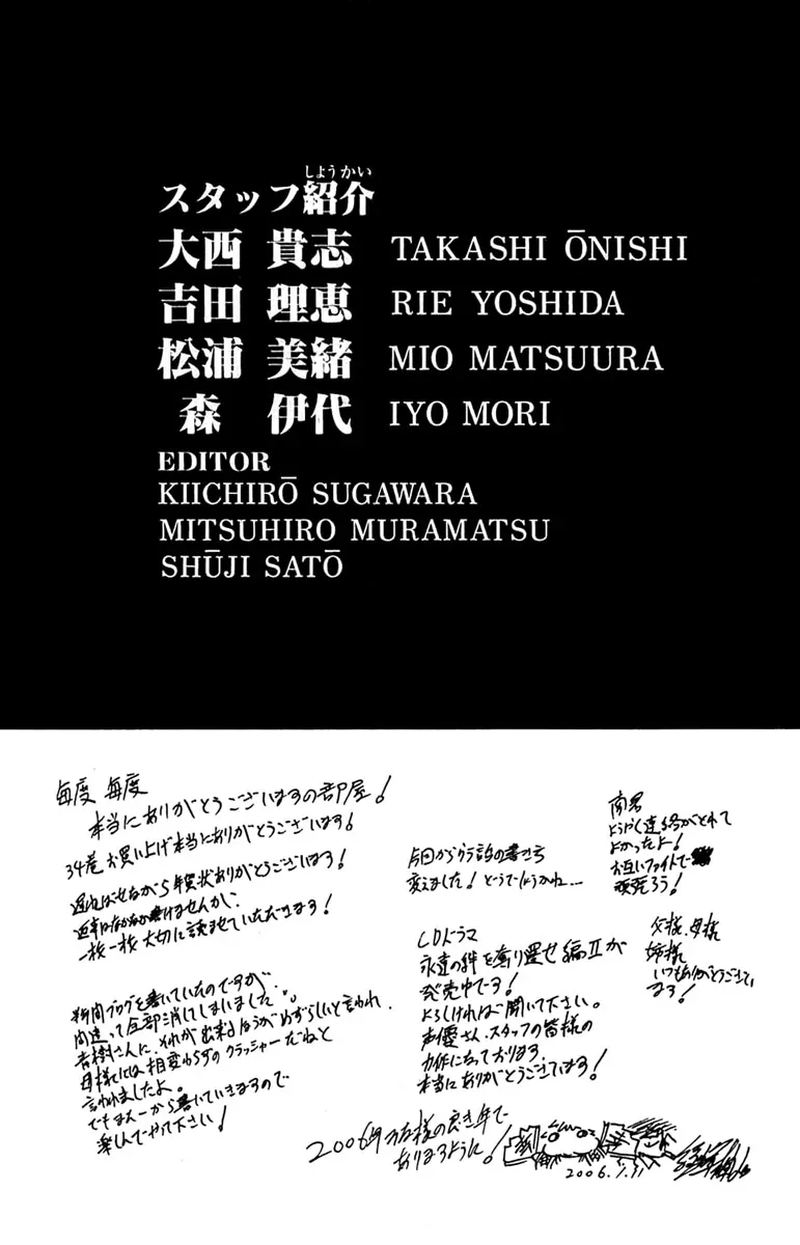 しょうかい
スタッフ紹介
大西 貴志 TAKASHI ŌNISHI
吉田 理恵 RIE YOSHIDA
松浦 美緒 MIO MATSUURA
森 伊代 IYO MORI
EDITOR
KIICHIRŌ SUGAWARA
MITSUHIRO MURAMATSU
SHŪJI SATŌ
毎度 毎度
本当にありがとうございますの部屋!
34巻お買い上げ本当にありがとうございます!
遅ればせながら年賀状ありがとうございます!
近年はなかなか書けませんが、
一枚一枚大切に読ませていただきます!
新聞ブログを書いていたのですが
間違って全部消してしまいました。
吉樹さんに、それが出来るほうがめずらしいと言われ
母様には相変わらずのクラッシャーだねと
言われましたよ。
でもまた一から書いていきますので
楽しんでやって下さい!
今回からクラ話の書き方
変えました!どうでしょうかね…
CDドラマ
永遠の絆を奪り還せ編IIが
発売中です!
よろしければ聞いて下さい。
声優さん、スタッフの皆様の
力作になっております。
本当にありがとうございます!
南君
ようやく連絡がとれて
よかったよ!
お互いファイトで
頑張ろう!
父様、母様
姉様
いつもありがとうござい
ます!
2006年が皆様の良き年で
ありますように!
2006.1.31